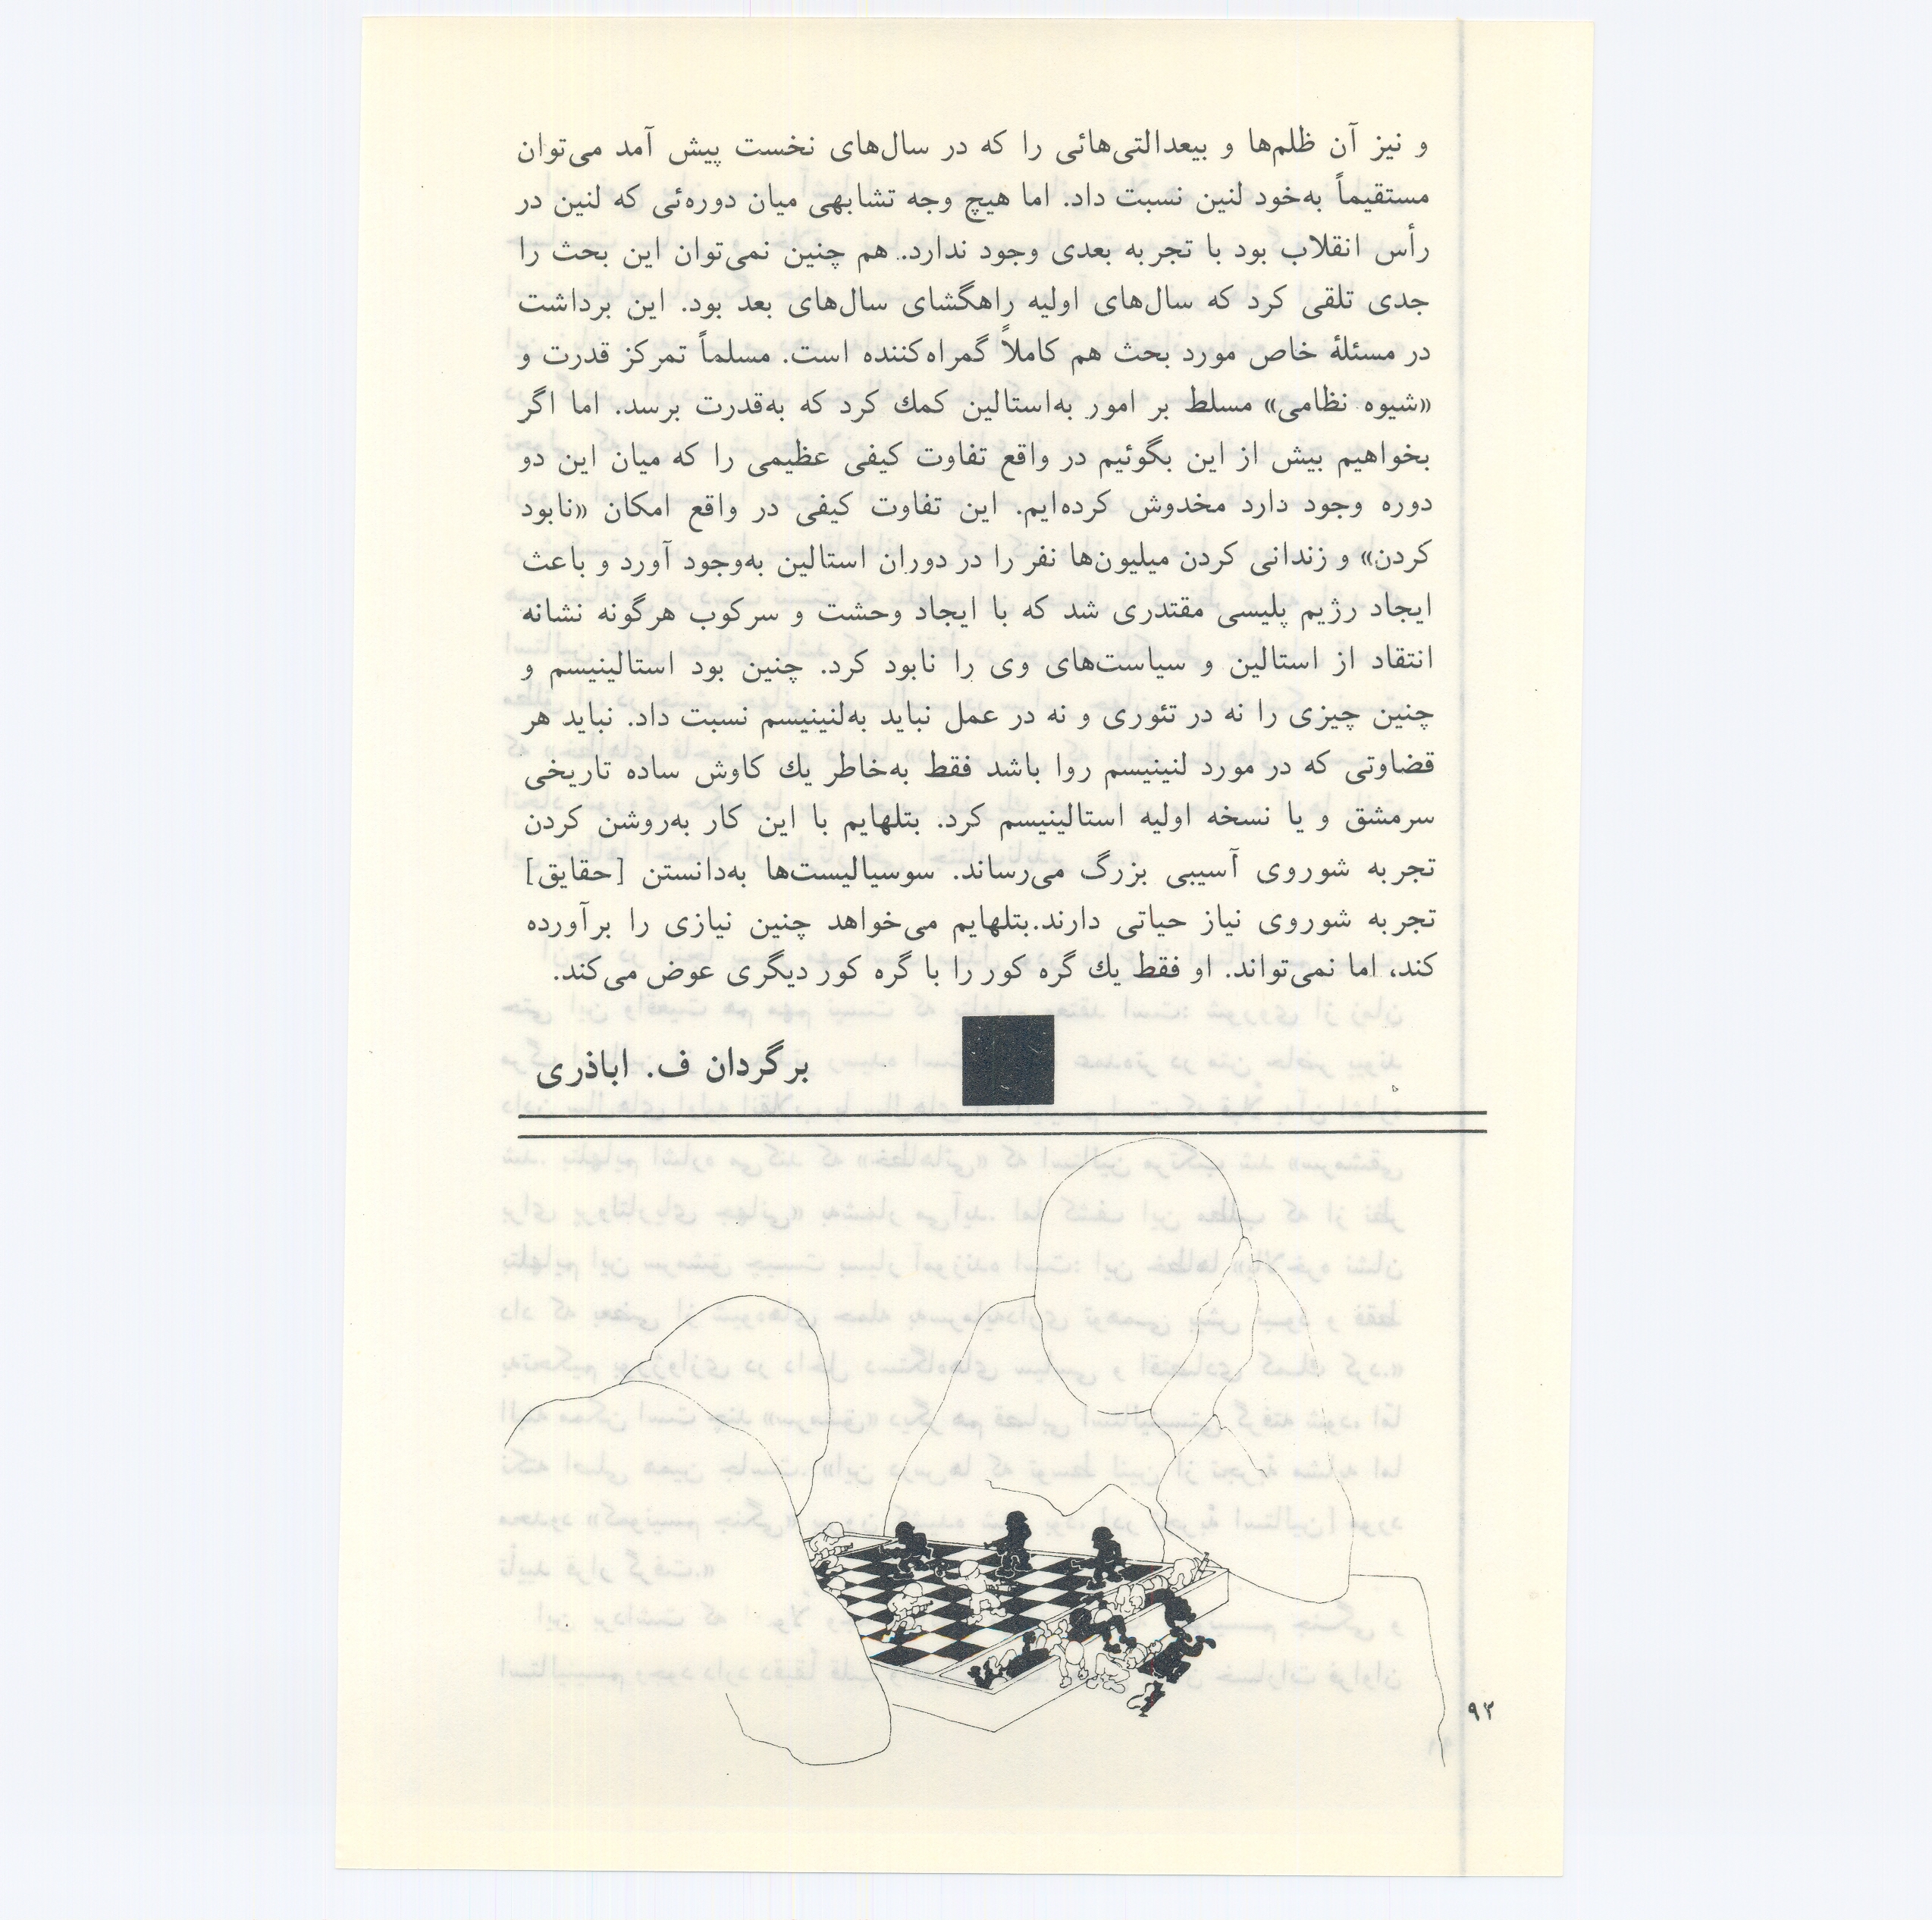 و نیز آن ظلم‌ها و بیعدالتی‌هائی را که در سال‌های نخست پیش آمد می‌توان
مستقیماً به‌خود لنین نسبت داد. اما هیچ وجه تشابهی میان دوره‌ئی که لنین در
رأس انقلاب بود با تجربه بعدی وجود ندارد. هم چنین نمی‌توان این بحث را
جدی تلقی کرد که سال‌های اولیه راهگشای سال‌های بعد بود. این برداشت
در مسئلهٔ خاص مورد بحث هم کاملاً گمراه‌کننده است. مسلماً تمرکز قدرت و
«شیوه نظامی» مسلط بر امور به‌استالین کمك کرد که به‌قدرت برسد. اما اگر
بخواهیم بیش از این بگوئیم در واقع تفاوت کیفی عظیمی را که میان این دو
دوره وجود دارد مخدوش کرده‌ایم. این تفاوت کیفی در واقع امکان «نابود
کردن» و زندانی کردن میلیون‌ها نفر را در دوران استالین به‌وجود آورد و باعث
ایجاد رژیم پلیسی مقتدری شد که با ایجاد وحشت و سرکوب هرگونه نشانه
انتقاد از استالین و سیاست‌های وی را نابود کرد. چنین بود استالینیسم و
چنین چیزی را نه در تئوری و نه در عمل نباید به‌لنینیسم نسبت داد. نباید هر
قضاوتی که در مورد لنینیسم روا باشد فقط به‌خاطر یك کاوش ساده تاریخی
سرمشق و یا نسخه اولیه استالینیسم کرد. بتلهایم با این کار به‌روشن کردن
تجربه شوروی آسیبی بزرگ می‌رساند. سوسیالیست‌ها به‌دانستن [حقایق]
تجربه شوروی نیاز حیاتی دارند.بتلهایم می‌خواهد چنین نیازی را برآورده
کند، اما نمی‌تواند. او فقط یك گره کور را با گره کور دیگری عوض می‌کند.
برگردان ف. اباذری
۹۲